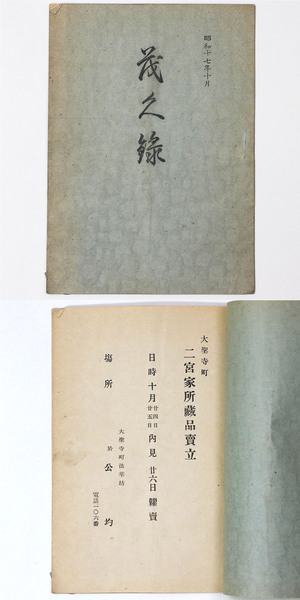 昭和十七年十月
茂久錄
大聖寺町
二宮家所藏品賣立
日時十月廿四日廿五日內見 廿六日糶賣
場所
大聖寺町法華坊
於 公均
電話一〇六番